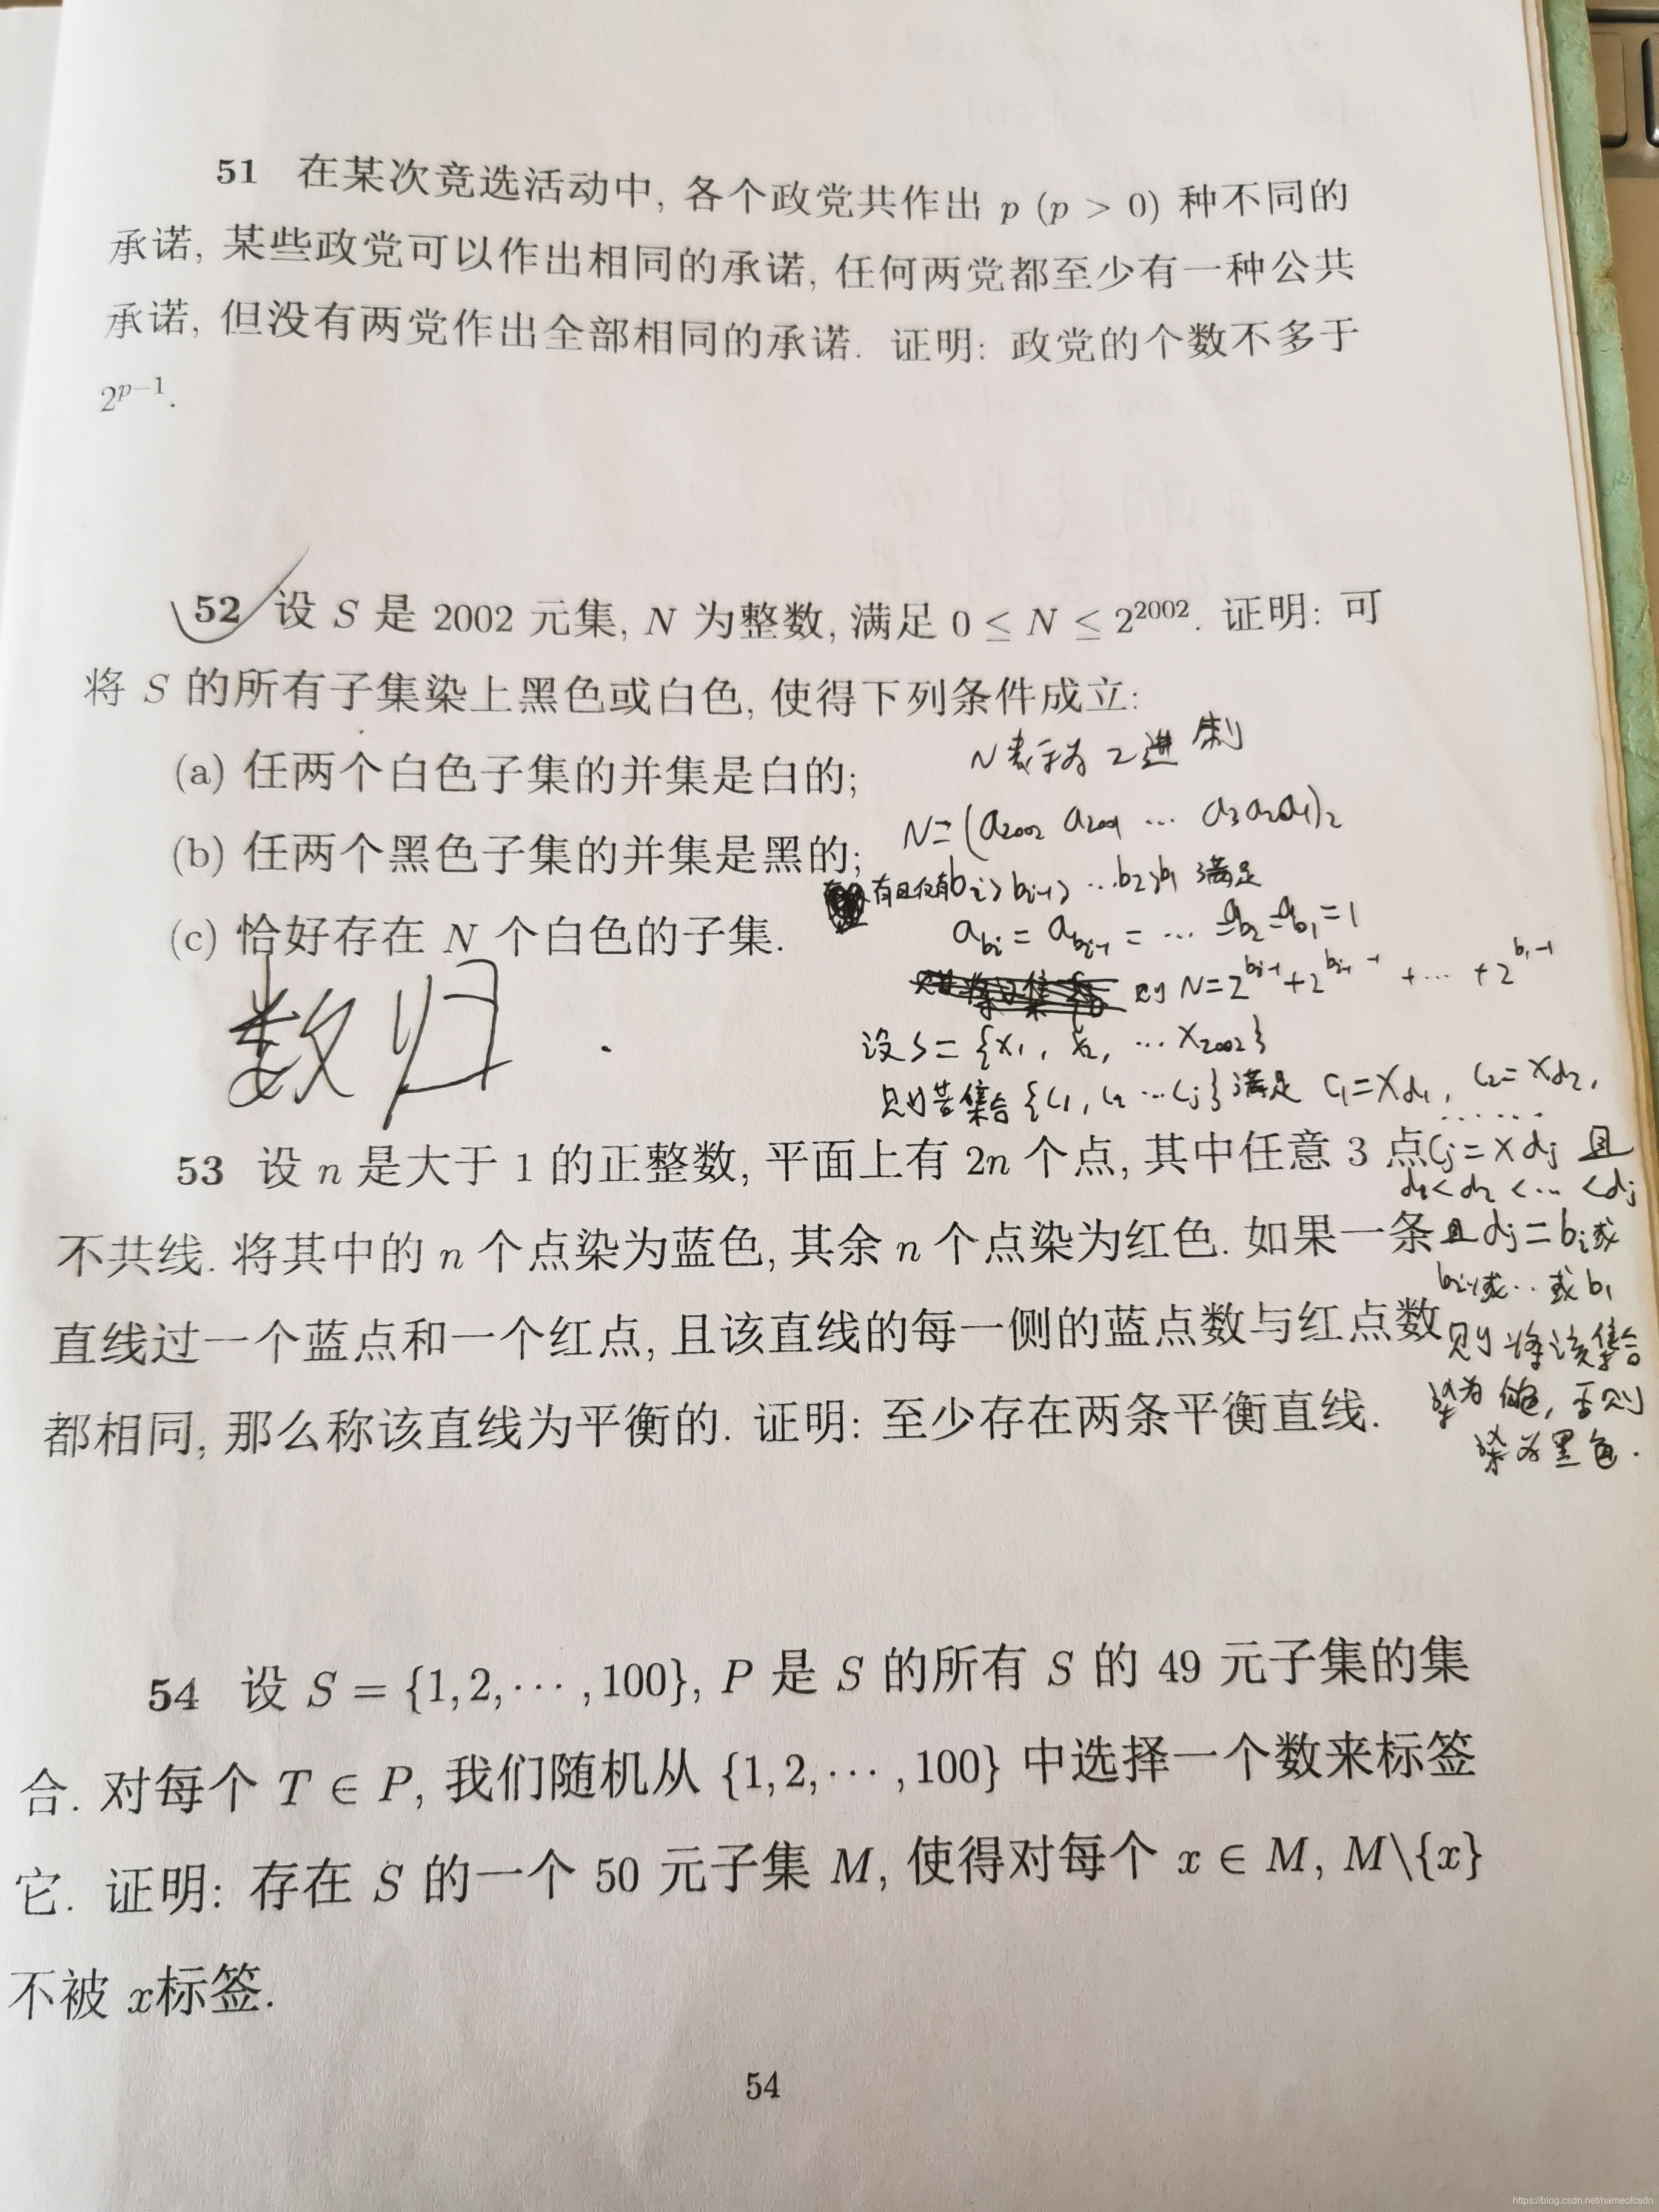 51 在某次竞选活动中, 各个政党共作出 p (p > 0) 种不同的
承诺, 某些政党可以作出相同的承诺, 任何两党都至少有一种公共
承诺, 但没有两党作出全部相同的承诺. 证明: 政党的个数不多于
2^{p-1}.
52 设 S 是 2002 元集, N 为整数, 满足 0 ≤ N ≤ 2^{2002}. 证明: 可
将 S 的所有子集染上黑色或白色, 使得下列条件成立:
(a) 任两个白色子集的并集是白的;
(b) 任两个黑色子集的并集是黑的;
(c) 恰好存在 N 个白色的子集.
N表示为2进制
N=(a_{2002} a_{2001} ⋯ a_3 a_2 a_1)_2
有且仅有b_i>b_{i-1}>⋯b_2>b_1 满足
a_{b_i} = a_{b_{i-1}} = ⋯ =a_{b_2}=a_{b_1}=1
则 N=2^{b_i-1}+2^{b_{i-1}-1}+⋯+2^{b_1-1}
设S={x_1, x_2, ⋯x_{2002}}
则若集合{c_1, c_2 ⋯c_j}满足 c_1=x_{d_1}, c_2=x_{d_2},
⋯⋯
c_j=x_{d_j} 且
d_1<d_2<⋯<d_j
且 d_j=b_i或
b_{i-1}或⋯或b_1
则将该集合
染为白色, 否则
染为黑色.
数归
53 设 n 是大于 1 的正整数, 平面上有 2n 个点, 其中任意 3 点
不共线. 将其中的 n 个点染为蓝色, 其余 n 个点染为红色. 如果一条
直线过一个蓝点和一个红点, 且该直线的每一侧的蓝点数与红点数
都相同, 那么称该直线为平衡的. 证明: 至少存在两条平衡直线.
54 设 S = {1, 2, ⋯, 100}, P 是 S 的所有 S 的 49 元子集的集
合. 对每个 T ∈ P, 我们随机从 {1, 2, ⋯, 100} 中选择一个数来标签
它. 证明: 存在 S 的一个 50 元子集 M, 使得对每个 x ∈ M, M\{x}
不被 x标签.
54
https://blog.csdn.net/nameofcsdn